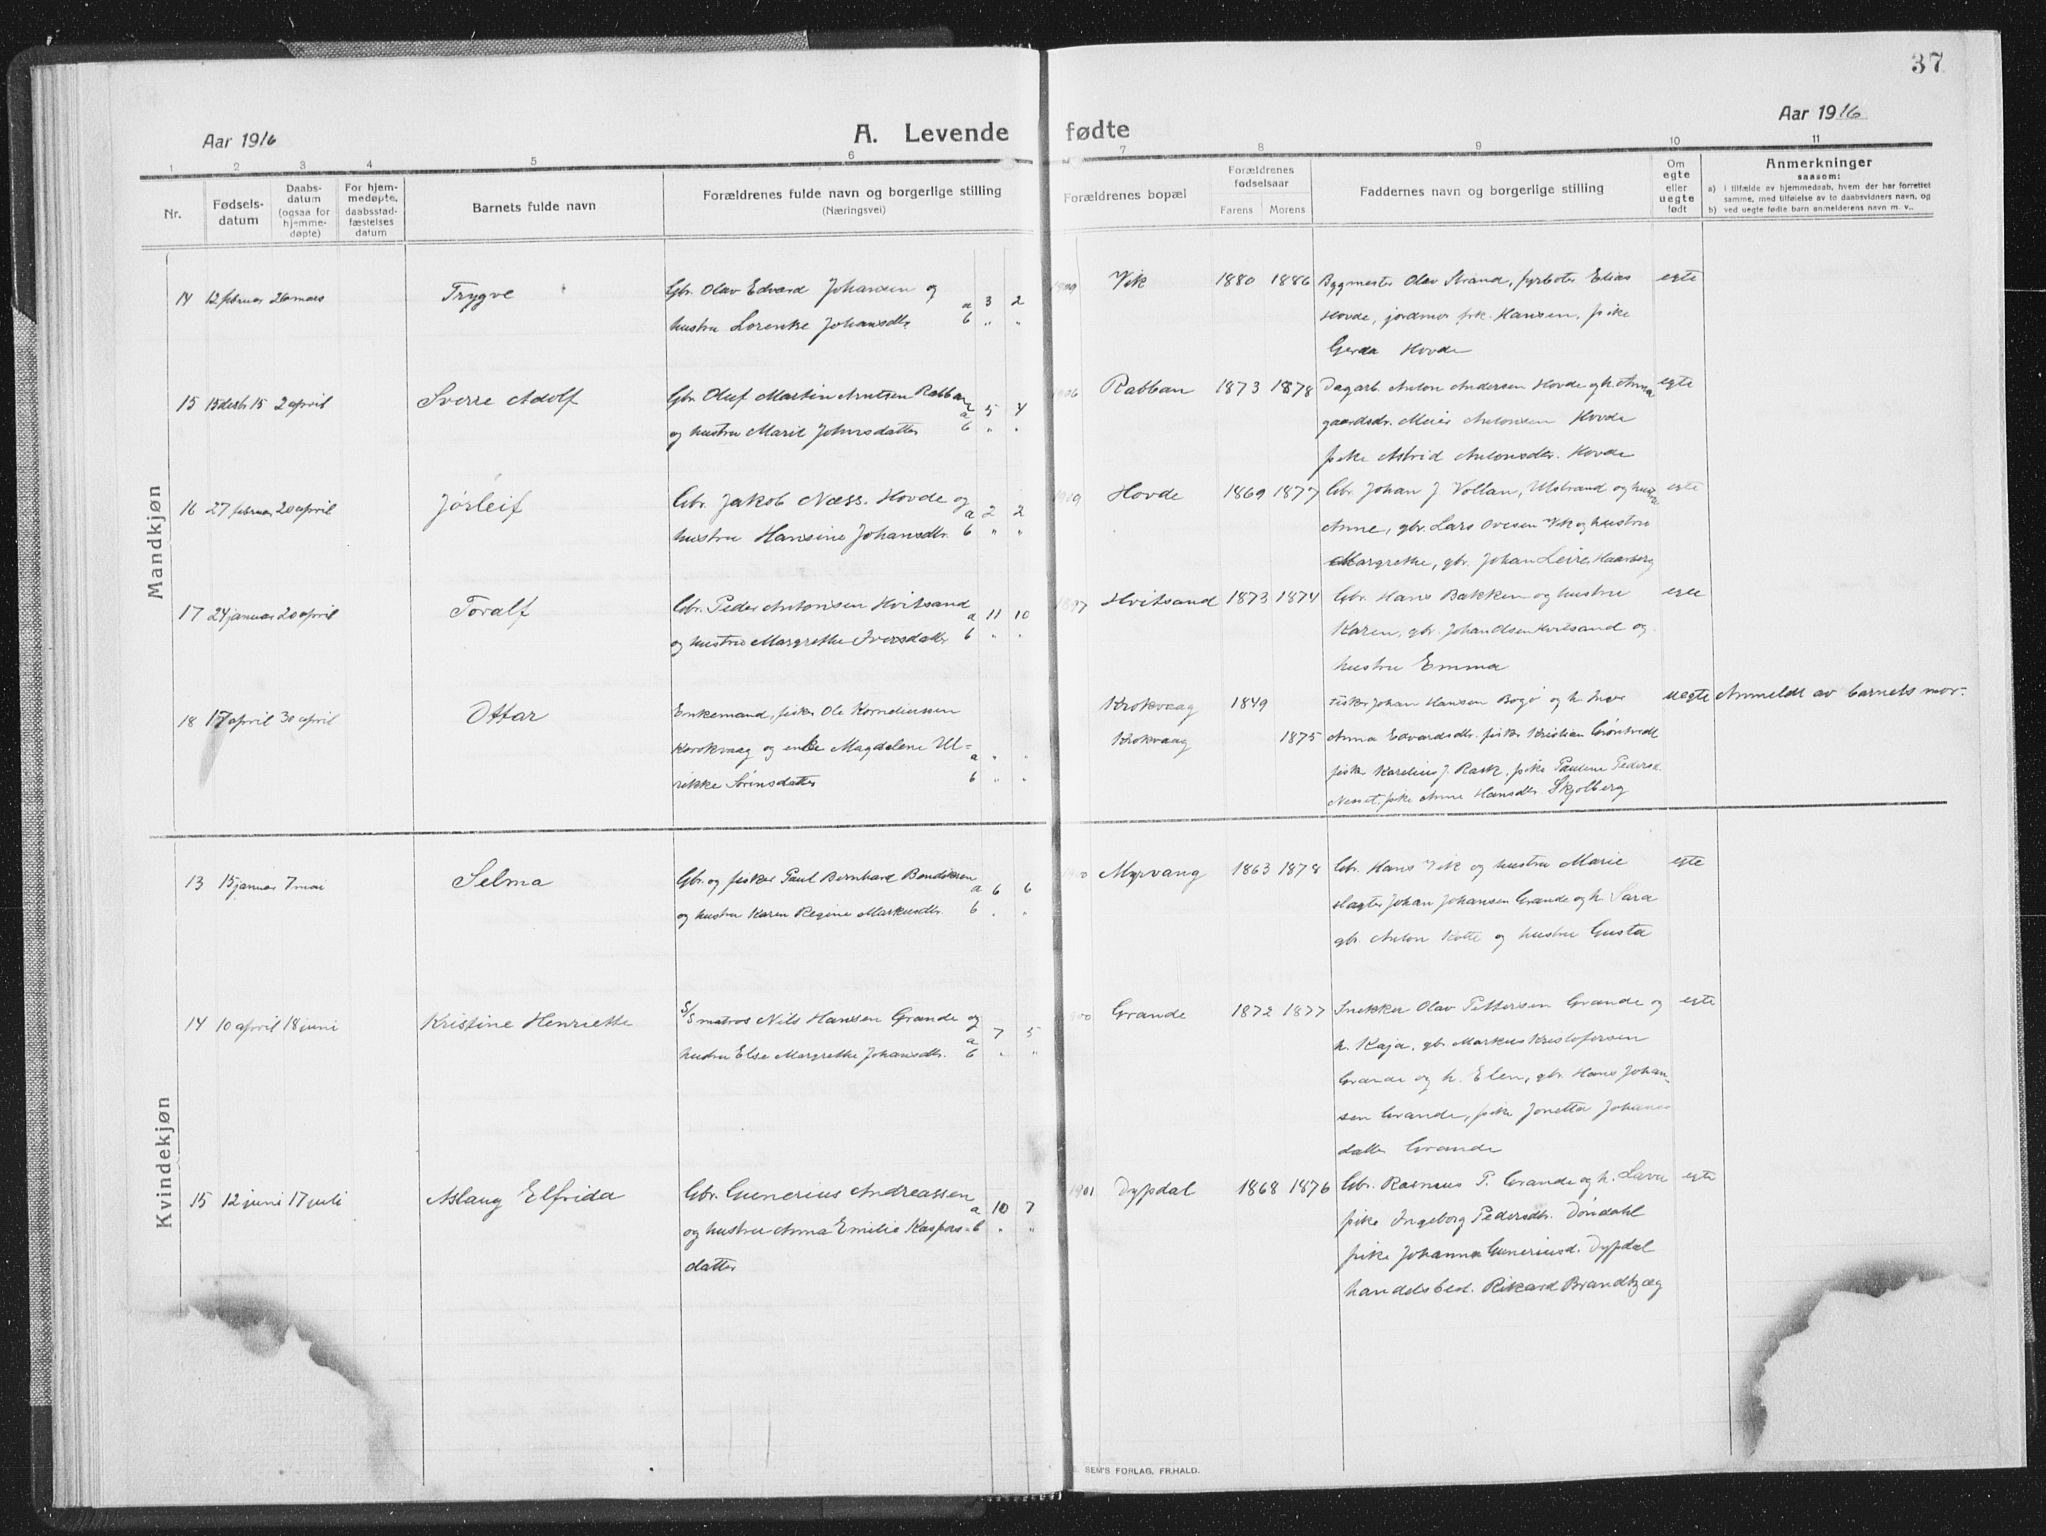 37
Aar 1916
A. Levende fødte
Aar 1916
1 2 3 4 5 6 7 8 9 10 11
Nr.
Fødsels-
datum
Daabs-
datum
(ogsaa for
hjemme-
døpte)
For hjem-
medøpte,
daabsstad-
fæstelses
datum
Barnets fulde navn
Forældrenes fulde navn og borgerlige stilling
(Næringsvei)
Forældrenes bopæl
Forældrenes
fødselsaar
Farens Morens
Faddernes navn og borgerlige stilling
Om
egte
eller
uegte
født
Anmerkninger
saasom:
a) i tilfælde av hjemmedaab, hvem der har forrettet
samme, med tilføielse av to daabsvidners navn, og
b) ved uegte fødte barn anmelderens navn m. v..
Mandkjøn
14 12 februar 26 mars Trygve Gbr. Olav Edvard Johansen og a 3 2 Vik 1880 1886 Bygmester Olav Strand, fyrbøter Elias egte
hustru Lorenke Johansdtr b " " Hovde, jordmor frk. Hansen, pike
Gerda Hovde
15 15 decbr 15 2 april Sverre Adolf Gbr. Oluf Martin Arntsen Rabban a 5 4 1906 Rabban 1873 1878 Dagarb. Anton Andersen Hovde og h. Anna egte
og hustru Marit Johnsdatter b " " gaardsdr. Antonsen Hovde
pike Astrid Antonsdtr. Hovde
16 27 februar 20 april Jørleif Gbr. Jakob Næss. Hovde og a 2 2 1909 Hovde 1869 1877 Gbr. Johan J. Vollan, Ulstrand og hustru egte
hustru Hansine Johansdtr. b " " Anne, gbr. Lars Ovesen Vik og hustru
Margrethe, gbr. Johan Leire, Haarberg
17 24 januar 20 april Toralf Gbr. Peder Antonsen Hvitsand a 11 10 1897 Hvitsand 1873 1874 Gbr. Hans Bakken og hustru egte
og hustru Margrethe Iversdatter b " " Karen, gbr. Johan Olsen Hvitsand og
hustru Emma
18 17 april 30 april Ottar Enkemand, fisker Ole Korneliussen Krokvaag 1849 fisker Johan Hansen Bogø og h. uegte Anmeldt av barnets mor.
Krokvaag og enke Magdelene Ul= a " " Krokvaag 1875 Anna Edvardsdtr. fisker Kristian Grøntvedt
rikke Sørensdatter b " " fisker Karelius J. Rask, pike Pauline Pedersd.
Nesset. pike Anne Hansdtr. Skjølberg
Kvindekjøn
13 15 januar 7 mai Selma Gbr. og fisker Paul Bernhard Bendiksen a 6 6 1900 Myrvang 1863 1878 Gbr. Hans Vik og hustru Marie egte
og hustru Karen Regine Markusdtr. b " " slagter Johan Johansen Grande og h. Sara
gbr. Anton Kotte og hustru Gusta
14 10 april 18 juni Kristine Henriette S/S matros Nils Hansen Grande og a 7 5 1900 Grande 1872 1877 Snekker Olav Pettersen Grande og egte
hustru Else Margrethe Johansdtr. b " " h. Kaja, gbr Markus Kristofersen
Grande og h. Elen, gbr. Hans Johan-
sen Grande, pike Jonetta Johannes
datter Grande
15 12 juni 17 juli Aslaug Elfrida Gbr. Gunerius Andreassen a 10 7 1901 Dypdal 1868 1876 Gbr. Rasmus P. Grande og h. egte
og hustru Anna Emilie Kaspars= b " " pike Ingeborg Pedersdtr. Døndahl
datter pike Johanna Guneriusd. Dypdal
handelsbest. Rikard Brandtzæg
SEM'S FORLAG, FR.HALD.